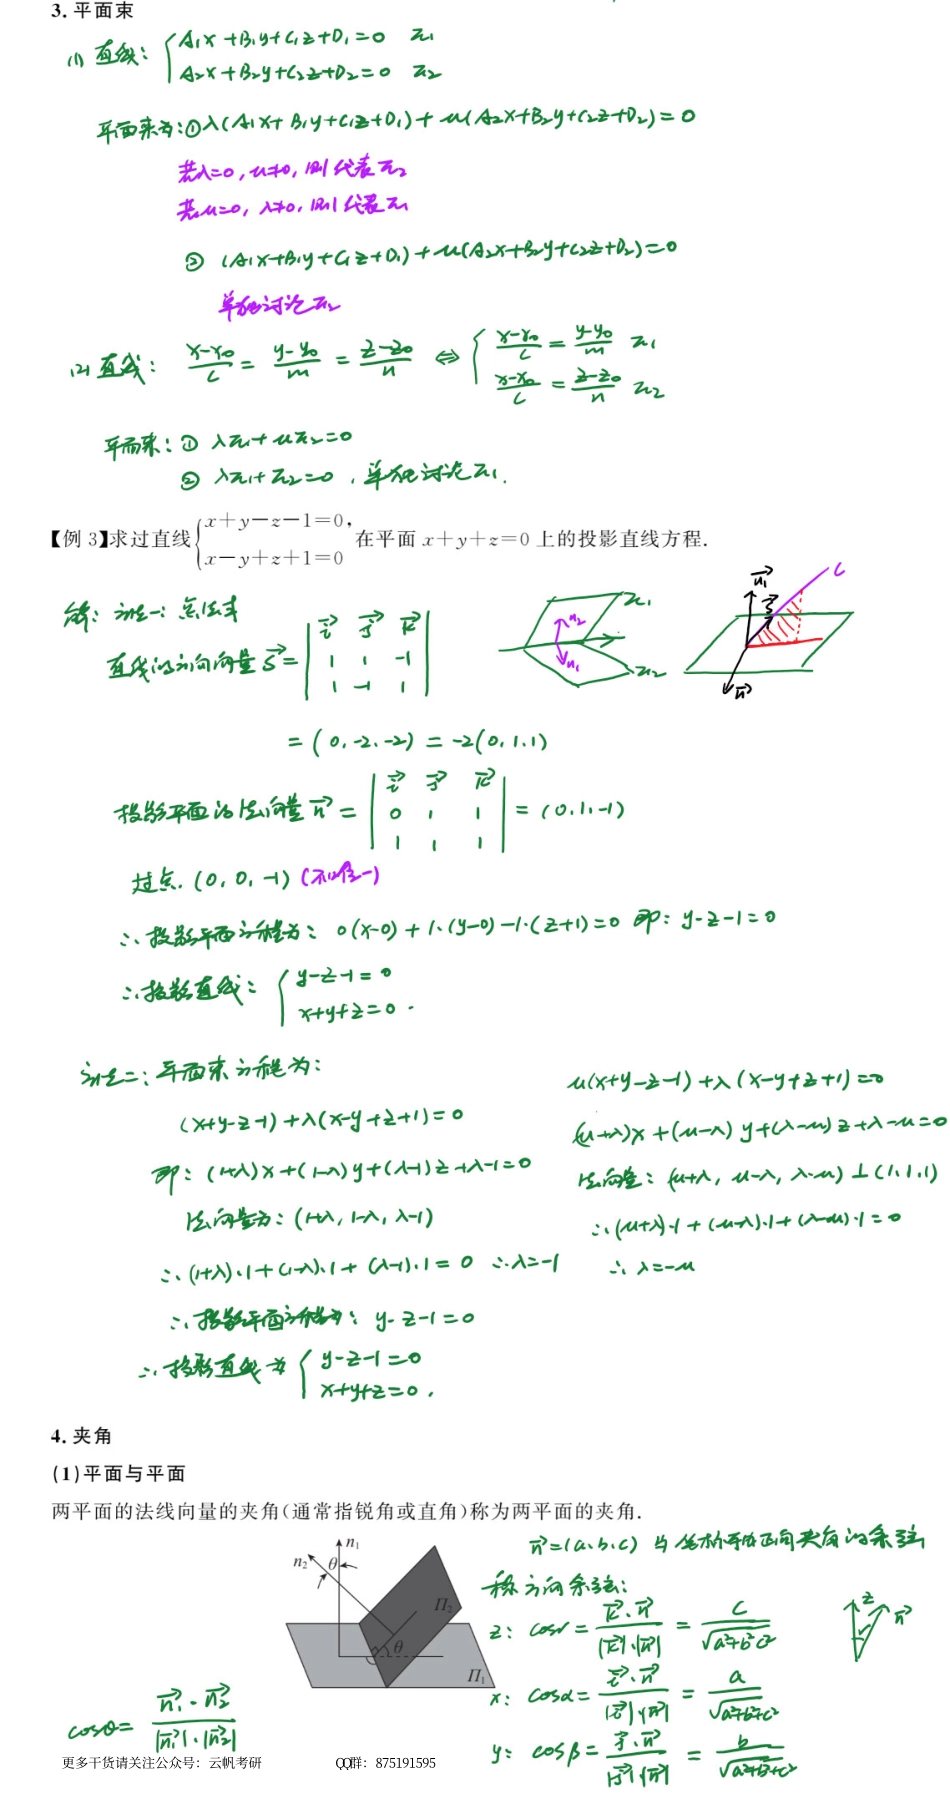 3. 平面束
(1) 直线: { A₁x+B₁y+C₁z+D₁=0 π₁
A₂x+B₂y+C₂z+D₂=0 π₂
平面束为:①λ(A₁x+B₁y+C₁z+D₁)+μ(A₂x+B₂y+C₂z+D₂)=0
若λ=0,μ≠0,则代表π₂
若μ=0,λ≠0,则代表π₁
② (A₁x+B₁y+C₁z+D₁)+μ(A₂x+B₂y+C₂z+D₂)=0
单独讨论π₂
(2) 直线: (x-x₀)/L = (y-y₀)/m = (z-z₀)/n ⇔ { (x-x₀)/L = (y-y₀)/m π₁
(x-x₀)/L = (z-z₀)/n π₂
平面束:① λπ₁+μπ₂=0
② λπ₁+π₂=0,单独讨论π₁.
【例 3】求过直线{x+y-z-1=0, x-y+z+1=0 在平面 x+y+z=0 上的投影直线方程.
解: 法一: 点法式
直线的方向向量 s⃗= | i⃗ j⃗ k⃗ |
| 1 1 -1 |
| 1 -1 1 |
π₁
n₂
n₁
π₂
n⃗₁
s⃗
L
n⃗
= (0,-2,-2) = -2(0,1,1)
投影平面的法向量 n⃗ = | i⃗ j⃗ k⃗ |
| 0 1 1 | = (0,1,-1)
| 1 1 1 |
过点.(0,0,-1) (不唯一)
∴投影平面方程为: 0(x-0)+1·(y-0)-1·(z+1)=0 即: y-z-1=0
∴投影直线: { y-z-1=0
x+y+z=0.
法二: 平面束方程为:
(x+y-z-1)+λ(x-y+z+1)=0
即: (1+λ)x+(1-λ)y+(λ-1)z+λ-1=0
法向量为: (1+λ,1-λ,λ-1)
∴(1+λ)·1+(1-λ)·1+(λ-1)·1=0 ∴λ=-1
∴投影平面方程为: y-z-1=0
∴投影直线为 { y-z-1=0
x+y+z=0.
μ(x+y-z-1)+λ(x-y+z+1)=0
(μ+λ)x+(μ-λ)y+(λ-μ)z+λ-μ=0
法向量: (μ+λ,μ-λ,λ-μ)⊥(1,1,1)
∴(μ+λ)·1+(μ-λ)·1+(λ-μ)·1=0
∴λ=-μ
4. 夹角
(1)平面与平面
两平面的法线向量的夹角(通常指锐角或直角)称为两平面的夹角.
n₁
n₂
θ
Π₂
θ
Π₁
cosθ= (n⃗₁·n⃗₂)/(|n⃗₁|·|n⃗₂|)
n⃗=(a,b,c) 与坐标轴正向夹角的余弦
称方向余弦:
z: cosγ = (k⃗·n⃗)/(|k⃗|·|n⃗|) = c/√(a²+b²+c²)
z
n⃗
γ
x: cosα = (i⃗·n⃗)/(|i⃗|·|n⃗|) = a/√(a²+b²+c²)
y: cosβ = (j⃗·n⃗)/(|j⃗|·|n⃗|) = b/√(a²+b²+c²)
更多干货请关注公众号：云帆考研 QQ群：875191595